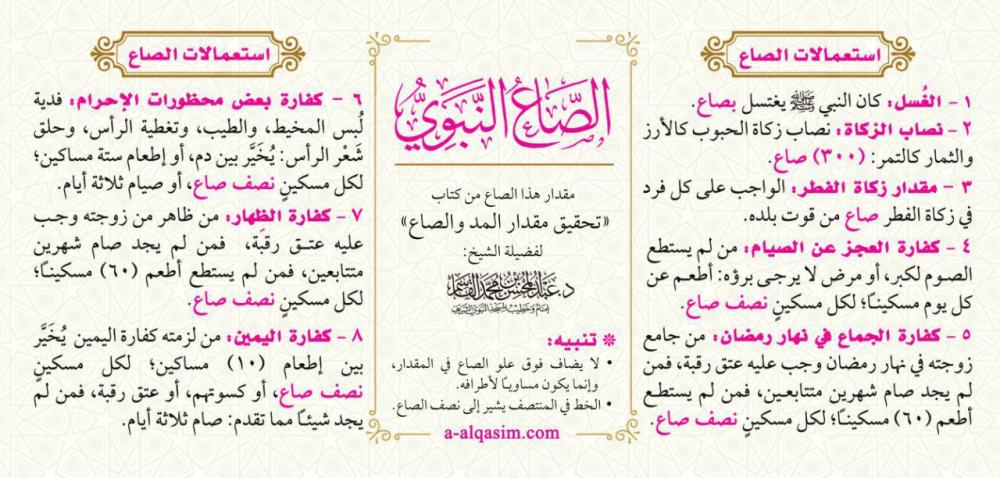 استعمالات الصاع
١ - الغُسل: كان النبي ﷺ يغتسل بصاع.
٢ - نصاب الزكاة: نصاب زكاة الحبوب كالأرز
والثمار كالتمر: (٣٠٠) صاع.
٣ - مقدار زكاة الفطر: الواجب على كل فرد
في زكاة الفطر صاع من قوت بلده.
٤ - كفارة العجز عن الصيام: من لم يستطع
الصوم لكبر، أو مرض لا يرجى برؤه: أطعم عن
كل يوم مسكينًا؛ لكل مسكينٍ نصف صاع.
٥ - كفارة الجماع في نهار رمضان: من جامع
زوجته في نهار رمضان وجب عليه عتق رقبة، فمن
لم يجد صام شهرين متتابعين، فمن لم يستطع
أطعم (٦٠) مسكينًا؛ لكل مسكينٍ نصف صاع.
الصَّاعُ النَّبَوِيُّ
مقدار هذا الصاع من كتاب
«تحقيق مقدار المد والصاع»
لفضيلة الشيخ:
د. عبد المحسن بن محمد القاسم
إمام وخطيب المسجد النبوي الشريف
* تنبيه:
• لا يضاف فوق علو الصاع في المقدار،
وإنما يكون مساويًا لأطرافه.
• الخط في المنتصف يشير إلى نصف الصاع.
a-alqasim.com
استعمالات الصاع
٦ - كفارة بعض محظورات الإحرام: فدية
لُبس المخيط، والطيب، وتغطية الرأس، وحلق
شَعْر الرأس: يُخَيَّر بين دم، أو إطعام ستة مساكين؛
لكل مسكينٍ نصف صاع، أو صيام ثلاثة أيام.
٧ - كفارة الظهار: من ظاهر من زوجته وجب
عليه عتق رقبَة، فمن لم يجد صام شهرين
متتابعين، فمن لم يستطع أطعم (٦٠) مسكينًا؛
لكل مسكينٍ نصف صاع.
٨ - كفارة اليمين: من لزمته كفارة اليمين يُخَيَّر
بين إطعام (١٠) مساكين؛ لكل مسكينٍ
نصف صاع، أو كسوتهم، أو عتق رقبة، فمن لم
يجد شيئًا مما تقدم: صام ثلاثة أيام.